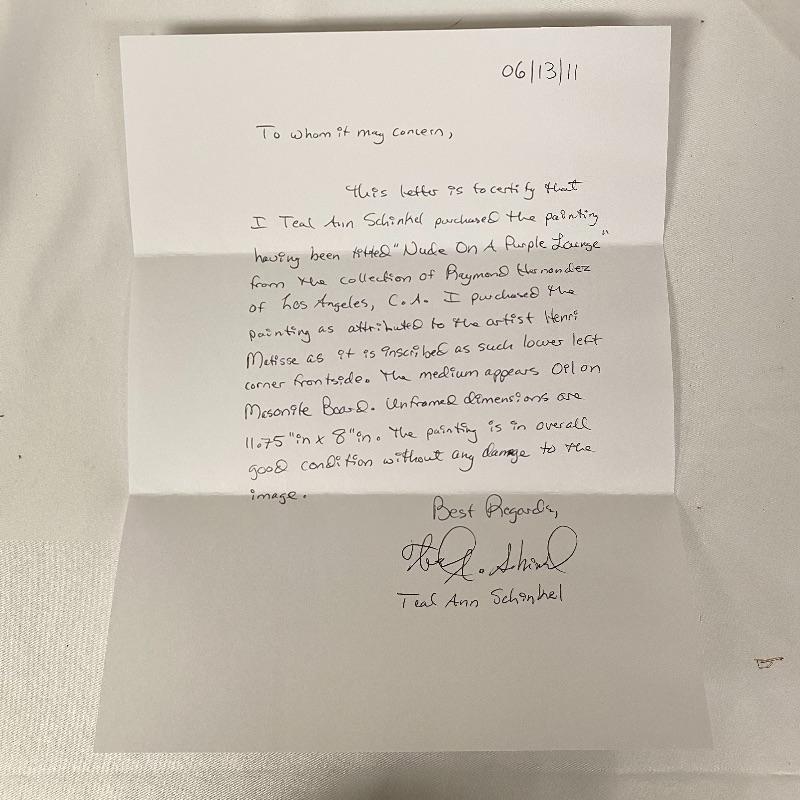 06/13/11
To whom it may concern,
This letter is to certify that
I Teal Ann Schinkel purchased the painting
having been titled "Nude On A Purple Lounge"
from the collection of Raymond Hernandez
of Los Angeles, C.A. I purchased the
painting as attributed to the artist Henri
Matisse as it is inscribed as such lower left
corner frontside. The medium appears Oil on
Masonite Board. Unframed dimensions are
11.75"in x 8"in. The painting is in overall
good condition without any damage to the
image.
Best Regards,
Teal Ann Schinkel